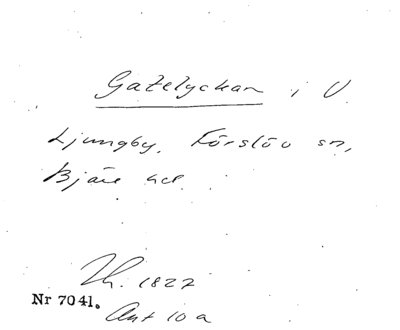 Gatelyckan i V.
Ljungby, Förslöv sn,
Bjäre hd.
Th. 1827
Nr 7041.
Ant 10 a